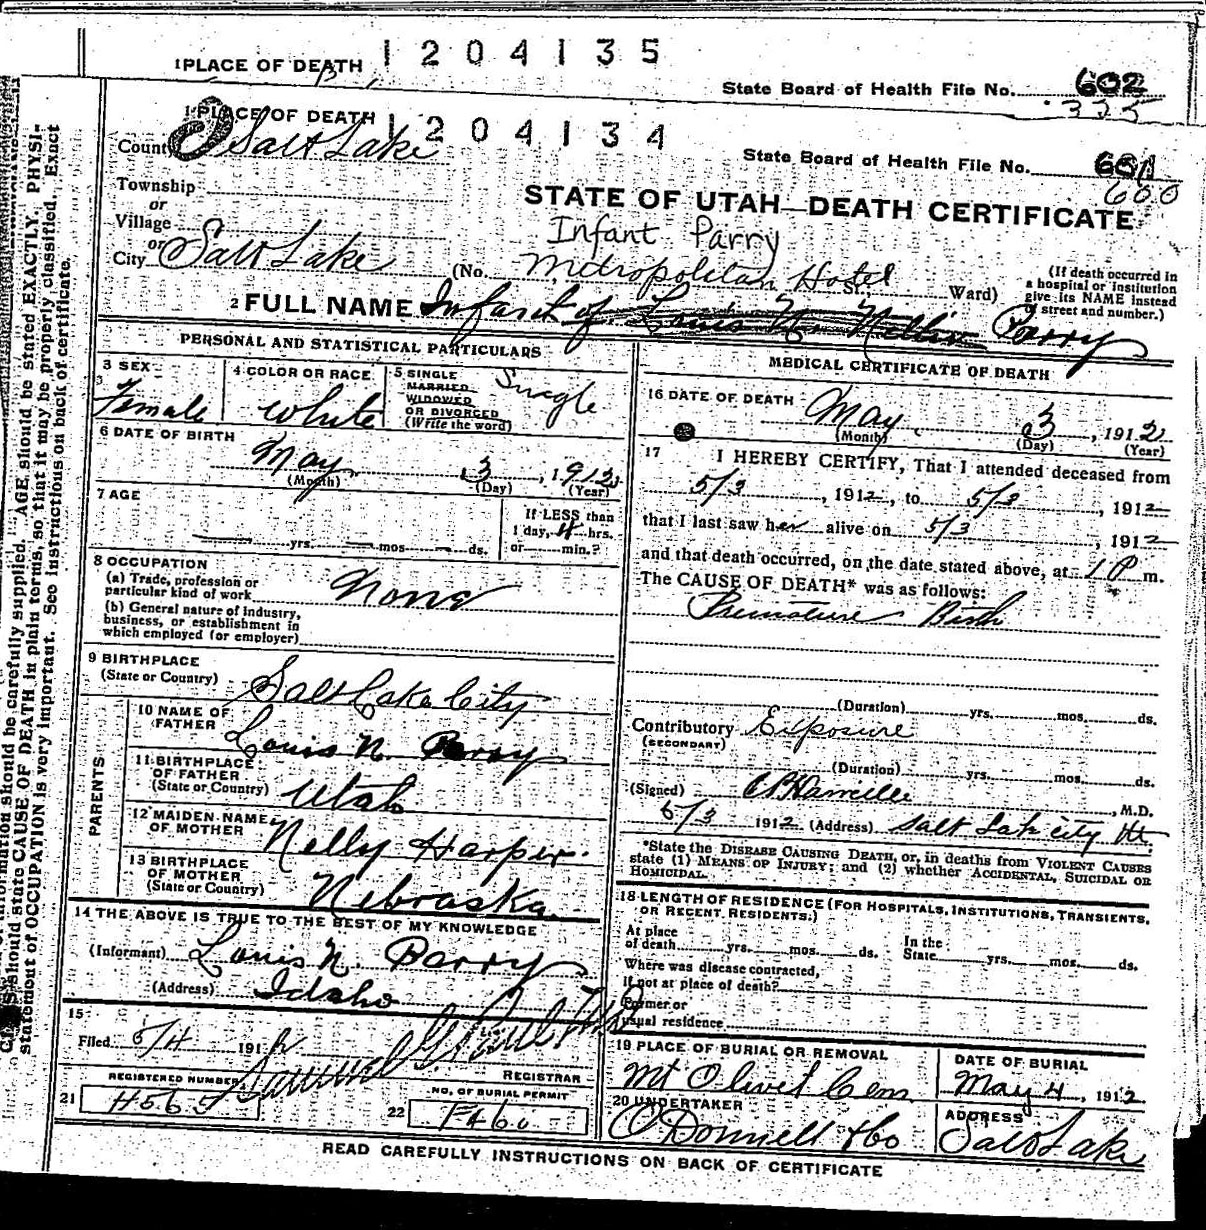 1 PLACE OF DEATH 1 2 0 4 1 3 5
State Board of Health File No. 602
325
1 PLACE OF DEATH 1 2 0 4 1 3 4
County Salt Lake
State Board of Health File No. 601
600
Township
or
Village
or
City Salt Lake
STATE OF UTAH—DEATH CERTIFICATE
Infant Parry
(No. Metropolitan Hotel St. Ward)
(If death occurred in a hospital or institution give its NAME instead of street and number.)
2 FULL NAME Infant of Louis N. Nellie Parry
PERSONAL AND STATISTICAL PARTICULARS
3 SEX
Female
4 COLOR OR RACE
White
5 SINGLE
MARRIED
WIDOWED
OR DIVORCED
(Write the word)
Single
6 DATE OF BIRTH
May 3, 1912
(Month) (Day) (Year)
7 AGE
yrs. mos. ds.
If LESS than
1 day, 4 hrs.
or min.?
8 OCCUPATION
(a) Trade, profession or
particular kind of work
None
(b) General nature of industry,
business, or establishment in
which employed (or employer)
9 BIRTHPLACE
(State or Country)
Salt Lake City
PARENTS
10 NAME OF
FATHER
Louis N. Parry
11 BIRTHPLACE
OF FATHER
(State or Country)
Utah
12 MAIDEN NAME
OF MOTHER
Nelly Harper.
13 BIRTHPLACE
OF MOTHER
(State or Country)
Nebraska
14 THE ABOVE IS TRUE TO THE BEST OF MY KNOWLEDGE
(Informant) Louis N. Parry
(Address) Idaho
15
Filed 5/4 1912
Samuel G. Paul
REGISTRAR
REGISTERED NUMBER
21 H565
NO. OF BURIAL PERMIT
22 F460
MEDICAL CERTIFICATE OF DEATH
16 DATE OF DEATH
May 3, 1912
(Month) (Day) (Year)
17 I HEREBY CERTIFY, That I attended deceased from
5/3, 1912, to 5/3, 1912
that I last saw her alive on 5/3, 1912
and that death occurred, on the date stated above, at 1 P m.
The CAUSE OF DEATH* was as follows:
Premature Birth
(Duration) yrs. mos. ds.
Contributory Exposure
(SECONDARY)
(Duration) yrs. mos. ds.
(Signed) , M.D.
5/3 1912 (Address) Salt Lake City Ut.
*State the DISEASE CAUSING DEATH, or, in deaths from VIOLENT CAUSES
state (1) MEANS OF INJURY; and (2) whether ACCIDENTAL, SUICIDAL OR
HOMICIDAL.
18 LENGTH OF RESIDENCE (FOR HOSPITALS, INSTITUTIONS, TRANSIENTS,
OR RECENT RESIDENTS.)
At place
of death yrs. mos. ds.
In the
State yrs. mos. ds.
Where was disease contracted,
if not at place of death?
Former or
usual residence
19 PLACE OF BURIAL OR REMOVAL
Mt Olivet Cem
DATE OF BURIAL
May 4, 1912
20 UNDERTAKER
O'Donnell & Co
ADDRESS
Salt Lake
READ CAREFULLY INSTRUCTIONS ON BACK OF CERTIFICATE
information should be carefully supplied. AGE should be stated EXACTLY. PHYSI-
CIANS should state CAUSE OF DEATH in plain terms, so that it may be properly classified. Exact
statement of OCCUPATION is very important. See instructions on back of certificate.